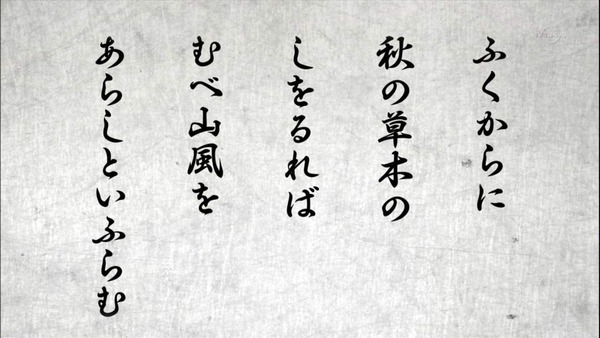 ふくからに
秋の草木の
しをるれば
むべ山風を
あらしといふらむ